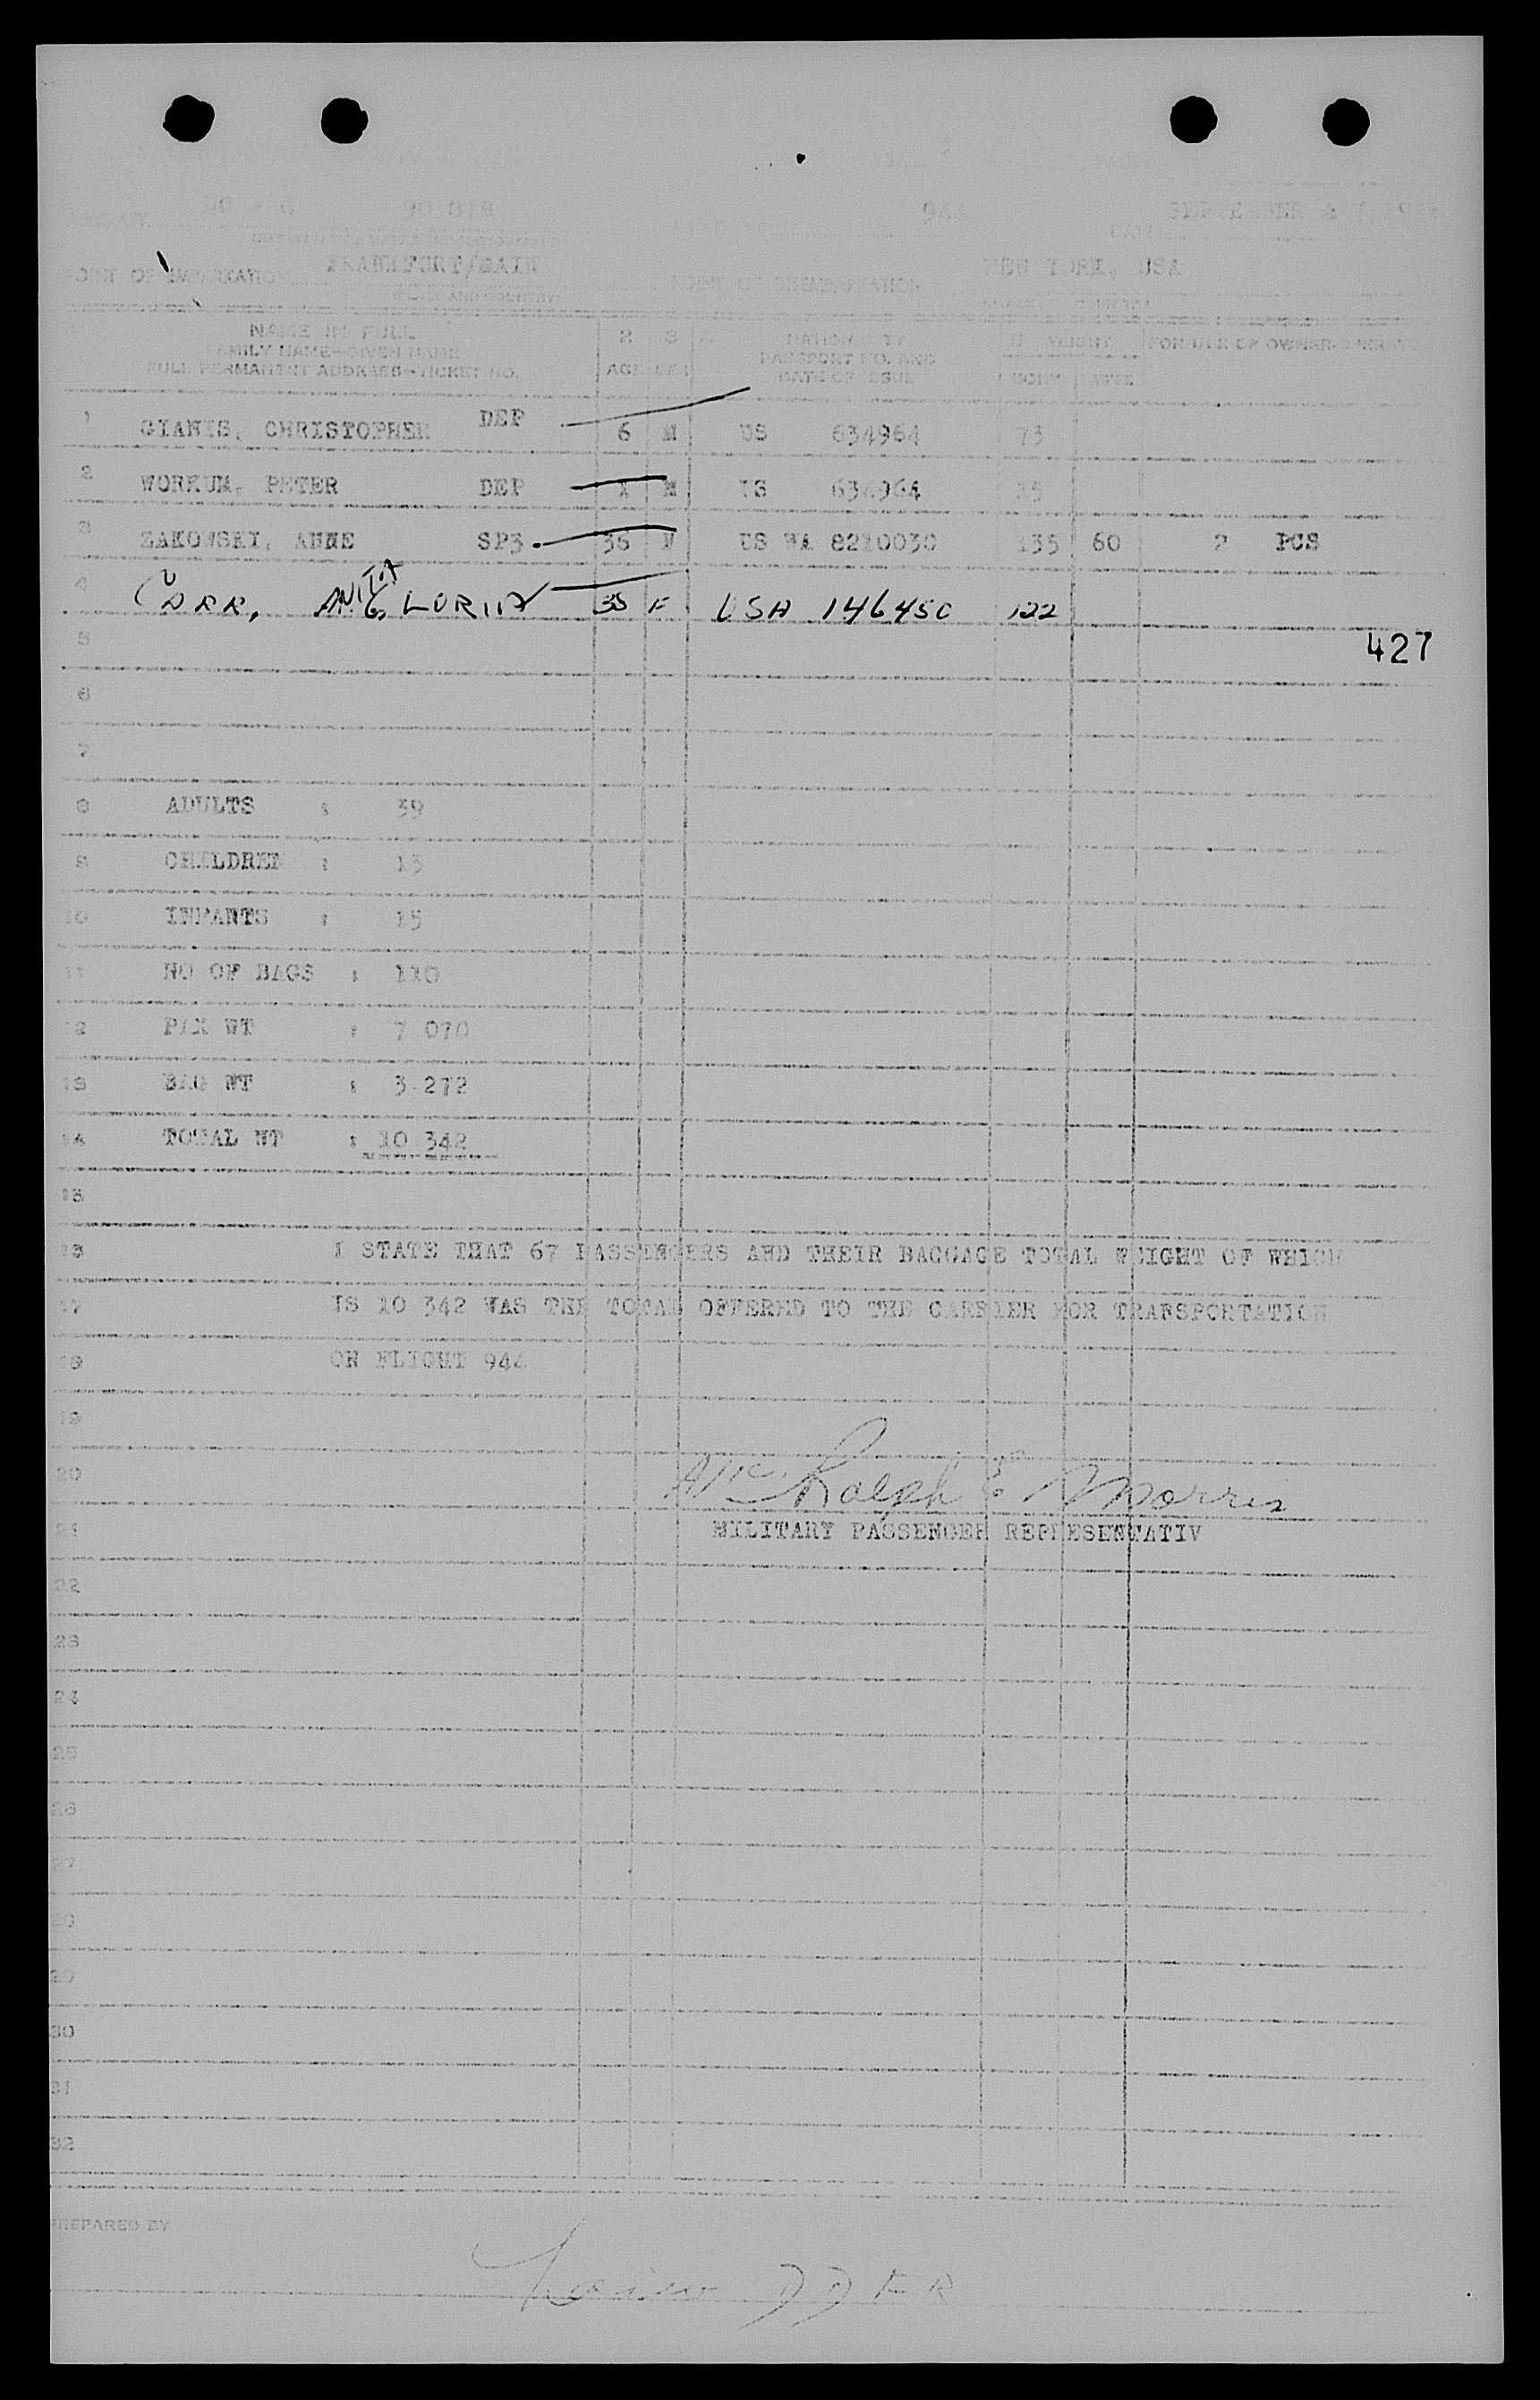 90 819
SEPTEMBER
DATE
POINT OF EMBARKATION FRANKFURT/MAIN POINT OF DISEMBARKATION NEW YORK, USA
NAME IN FULL 2 3
FAMILY NAME—GIVEN NAME PASSPORT NO. AND WEIGHT FOR USE OF OWNER
FULL PERMANENT ADDRESS—TICKET NO. AGE SEX DATE OF ISSUE BODY
1 GIANTS, CHRISTOPHER DEP 6 M US 634964 73
2 WORKUM, PETER DEP 1 M US 634964
3 ZAKOWSKI, ANNE SP3 36 F US WA 8210030 135 60 2 PCS
4 CARR, ANITA GLORIA 35 F USA 146450 122
5 427
6
7
8 ADULTS : 39
9 CHILDREN : 13
10 INFANTS : 15
11 NO OF BAGS : 110
12 PAX WT : 7 070
13 BAG WT : 3 272
14 TOTAL WT : 10 342
15
16 I STATE THAT 67 PASSENGERS AND THEIR BAGGAGE TOTAL WEIGHT OF WHICH
17 IS 10 342 WAS THE TOTAL OFFERED TO THE CARRIER FOR TRANSPORTATION
18 ON FLIGHT 944
19
20 Ralph E Morris
21 MILITARY PASSENGER REPRESENTATIV
22
23
24
25
26
27
28
29
30
31
32
PREPARED BY